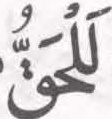 لَلْحَقُّ